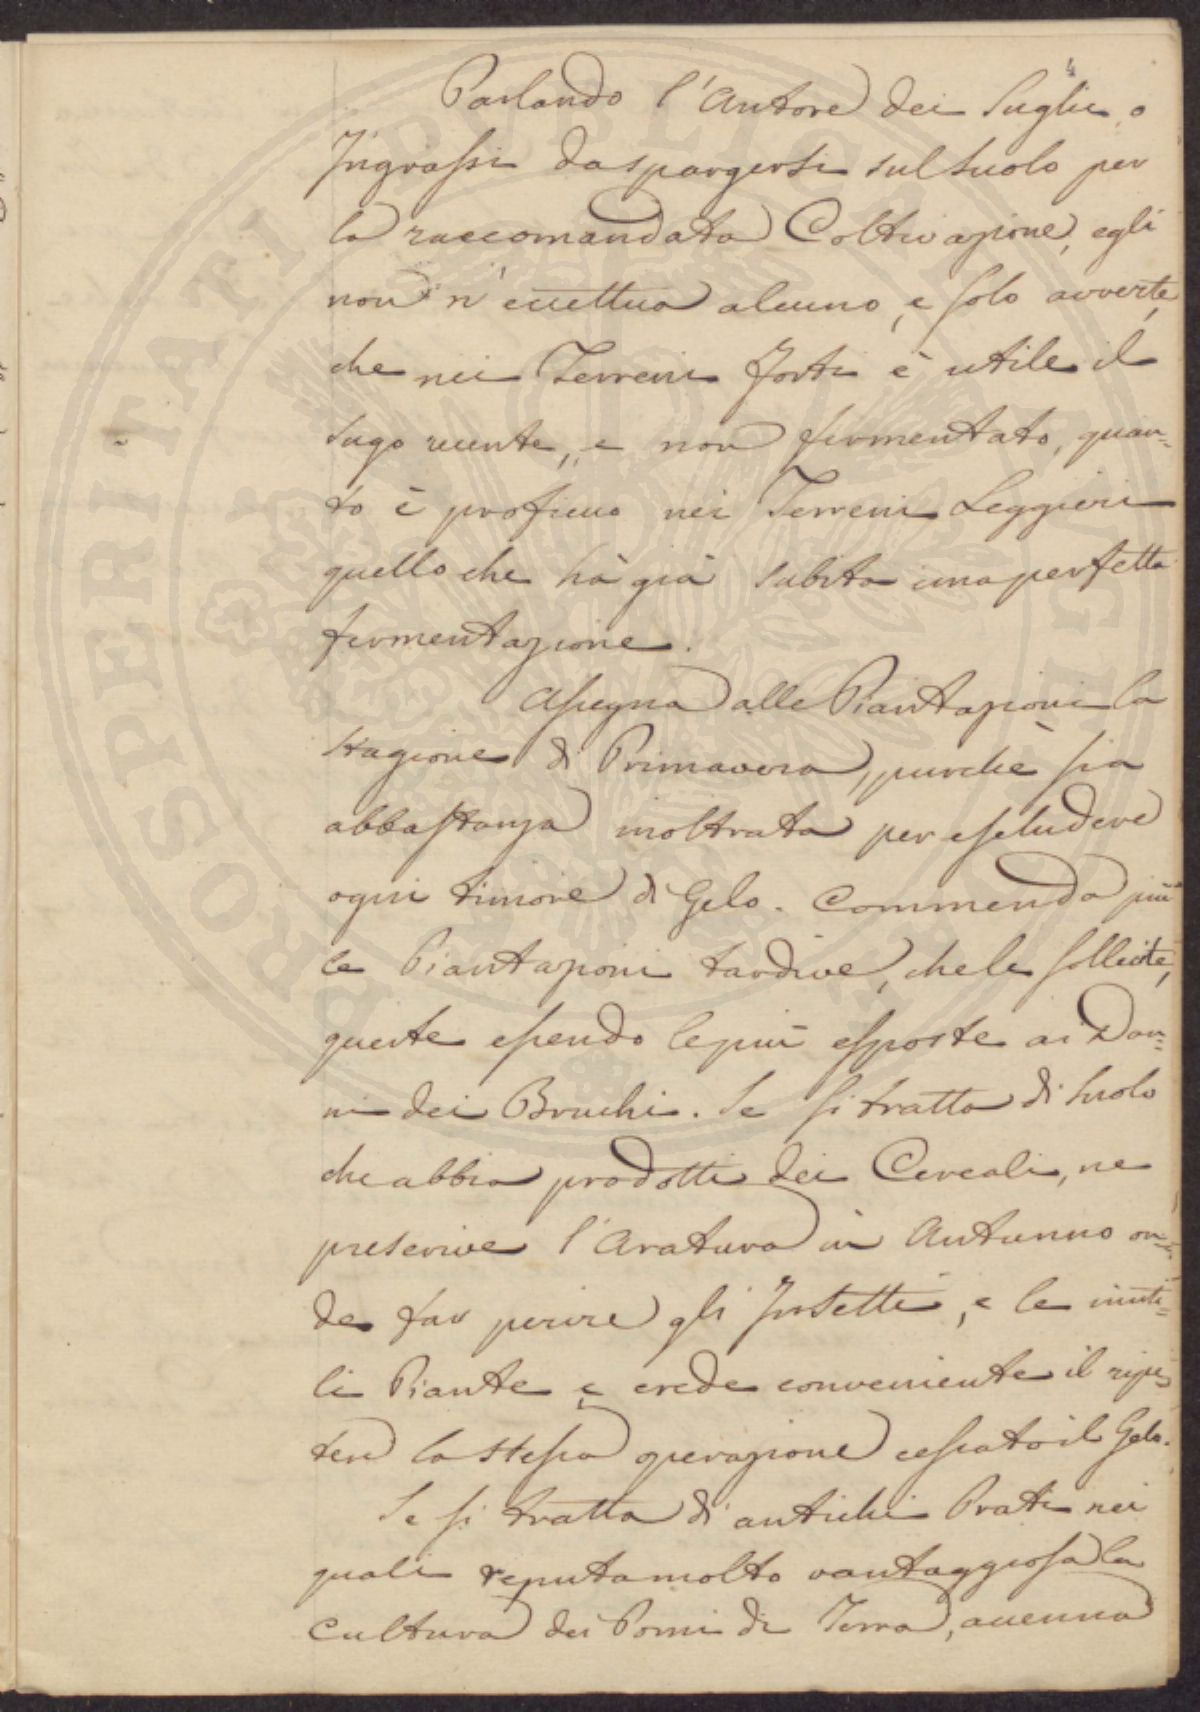 4
Parlando l'Autore dei Sughi, o
Ingrassi da spargersi sul suolo per
la raccomandata Coltivazione, egli
non n'eccettua alcuno, e solo avverte,
che nei Terreni forti è utile il
sugo recente, e non fermentato, quan=
to è proficuo nei Terreni Leggieri
quello che hà già subita una perfetta
fermentazione.
Assegna alle Piantazioni la
stagione di Primavera, purchè sia
abbastanza inoltrata per escludere
ogni timore di Gelo. Commenda più
le Piantazioni tardive, che le sollecite,
queste essendo le più esposte ai Dan=
ni dei Bruchi. Se si tratta di suolo
che abbia prodotti dei Cereali, ne
prescrive l'Aratura in Autunno on=
de far perire gli Insetti, e le inuti=
li Piante e crede conveniente il ripe=
tere la stessa operazione cessato il Gelo.
Se si tratta di antichi Prati nei
quali reputa molto vantaggiosa la
cultura dei Pomi di Terra, accenna
PROSPERITATI PUBLICAE